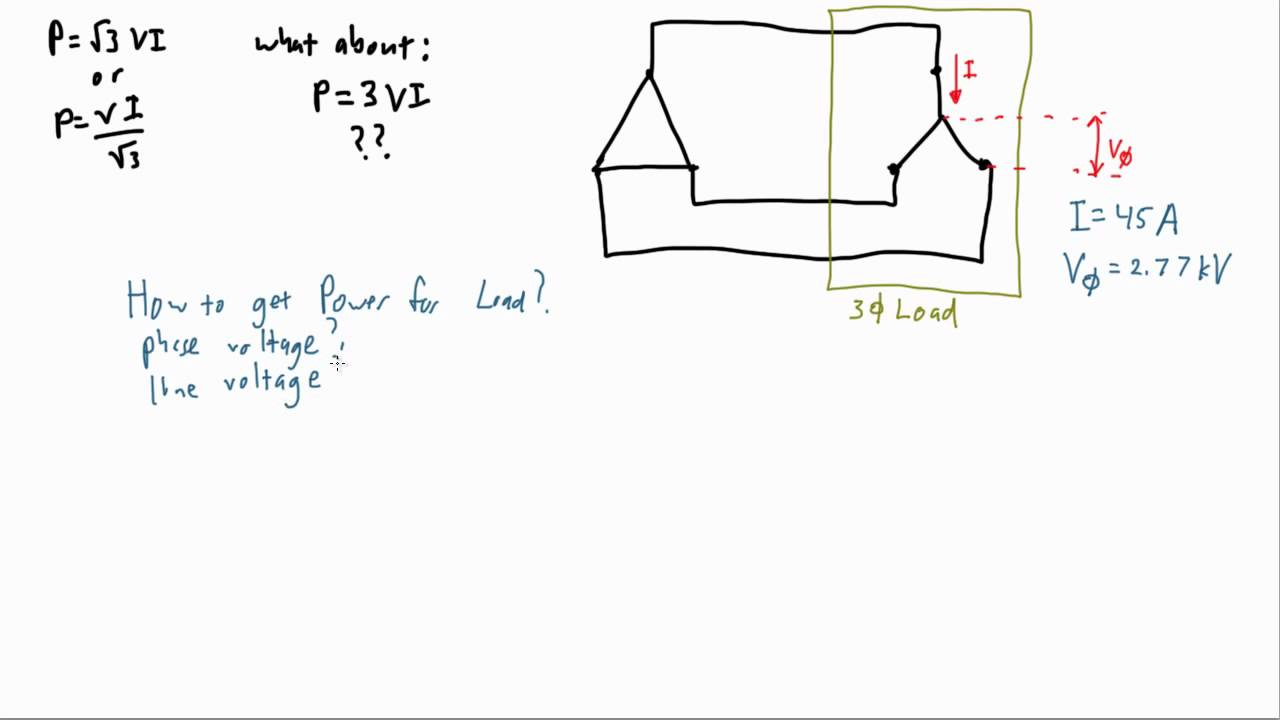 P = √3 VI
or
P = VI/√3
what about:
P = 3VI
??
I
Vϕ
I = 45 A
Vϕ = 2.77 kV
3ϕ Load
How to get Power for Load?
phase voltage?
line voltage